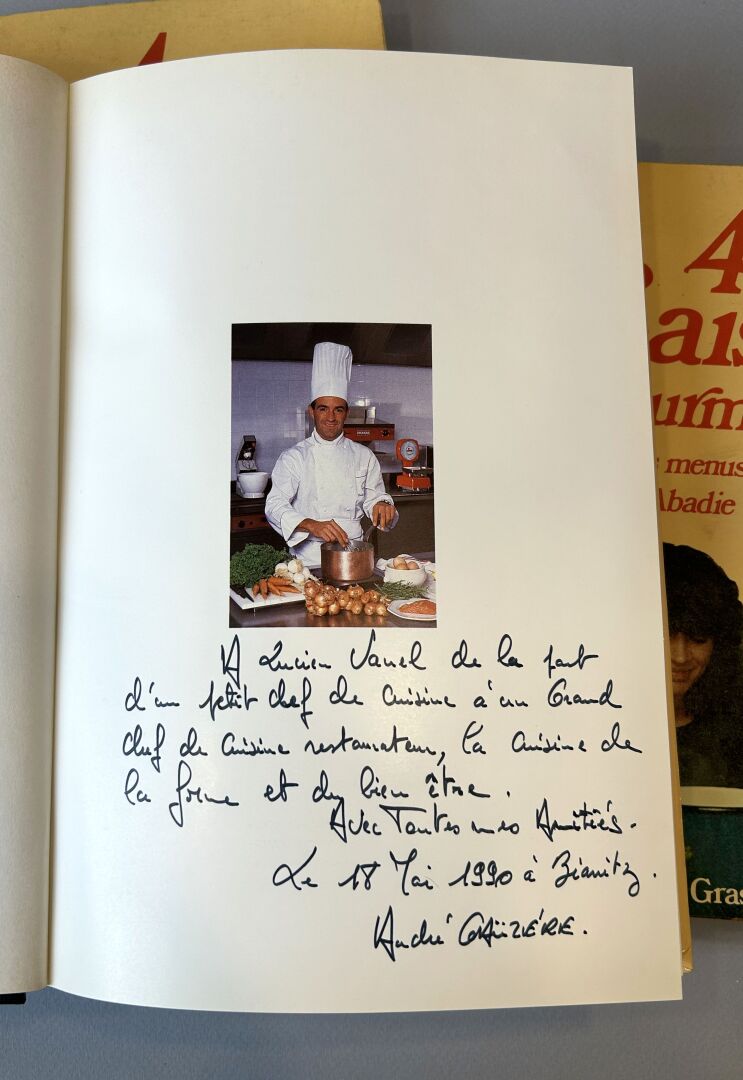 A Lucien Vanel de la part
d'un petit chef de cuisine à un Grand
chef de cuisine restaurateur, la cuisine de
la forme et du bien être.
Avec Toutes mes Amitiés.
Le 18 Mai 1990 à Biarritz.
André GAÜZÈRE.
4
. 4
ais
urm
menus
Abadie
Gras